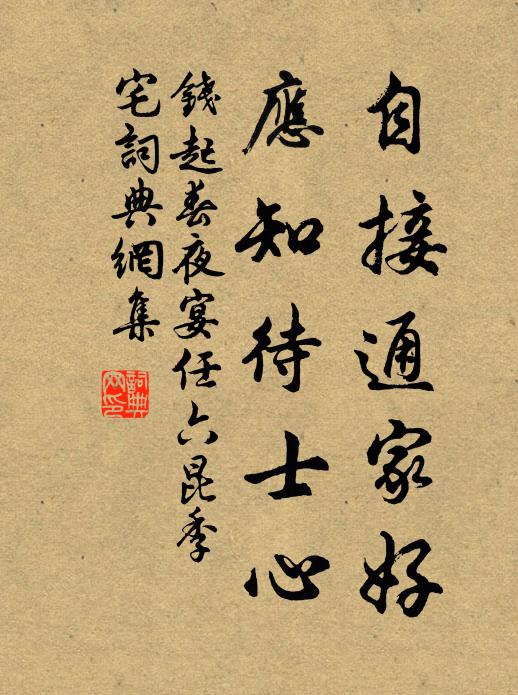 自接通家好
應知待士心
錢起春夜宴任六昆季
宅詞典網集
詞典
网印